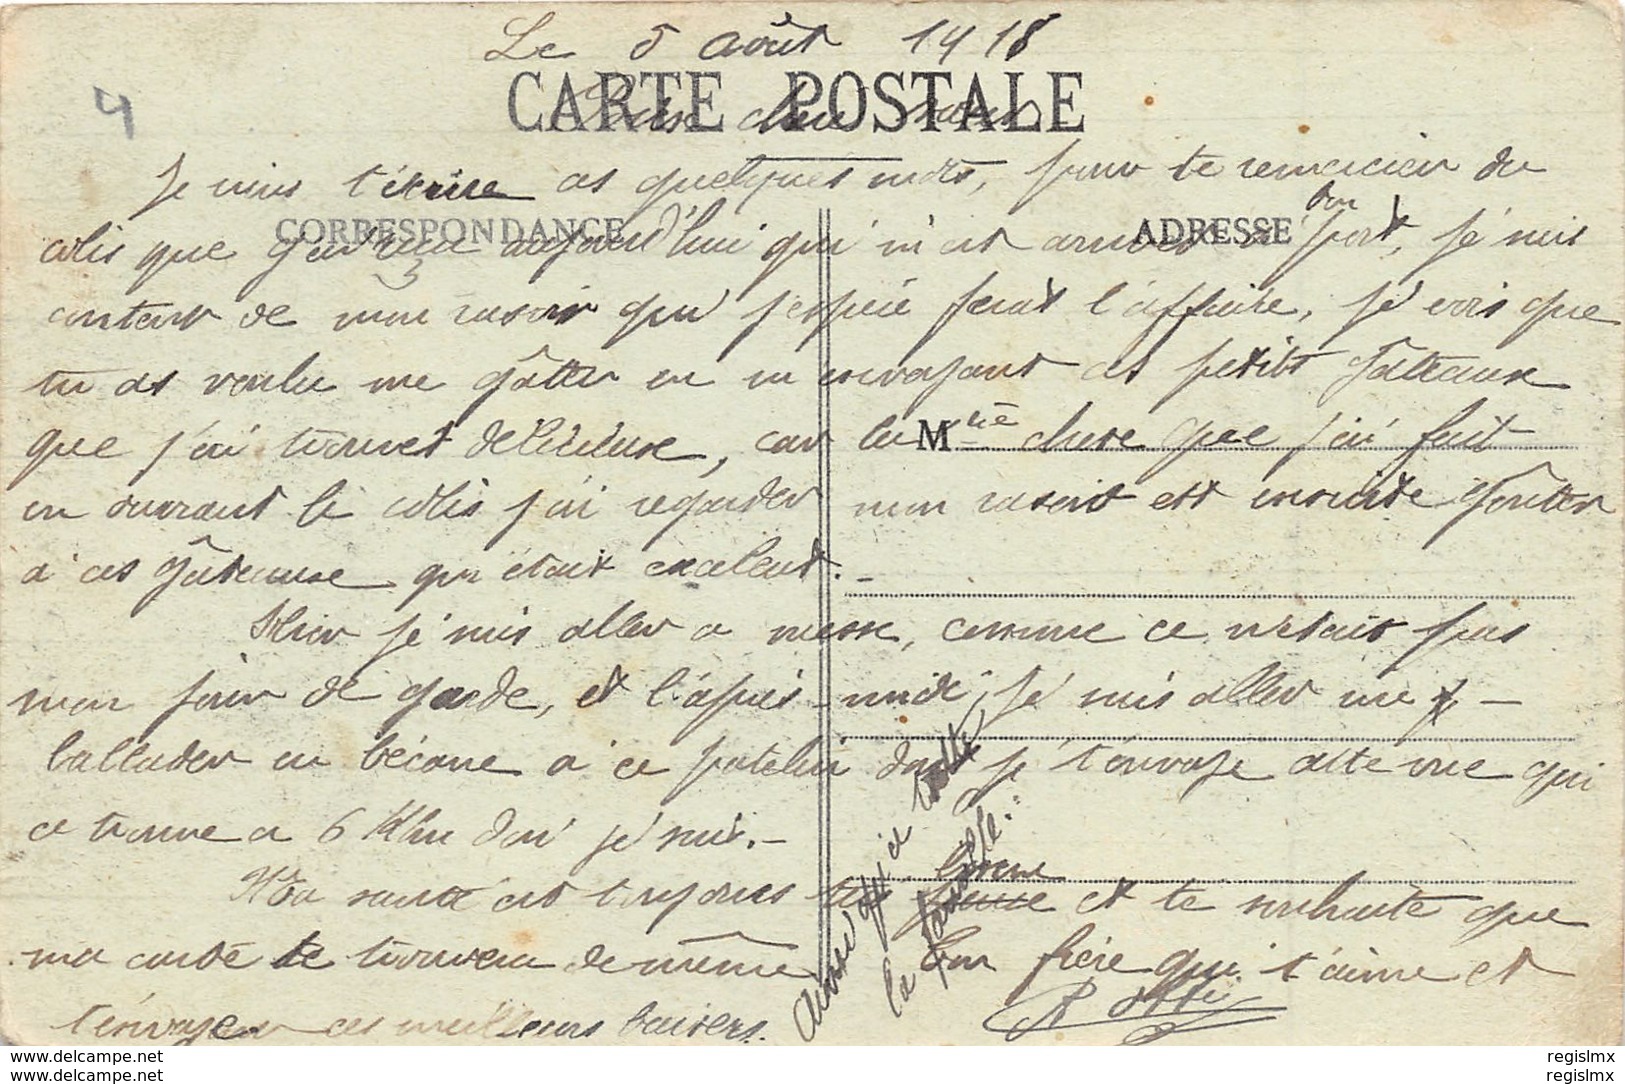 Le 5 août 1918
CARTE POSTALE
Bien chère sœur
Je viens t'écrire ces quelques mots, pour te remercier du
CORRESPONDANCE
ADRESSE
colis que j'ai reçu aujourd'hui qui m'est arrivé à bon port, je suis
content de mon rasoir qui j'espère ferat l'affaire, je vois que
tu as voulu me gâtter en m'envoyant ces petits gâteaux
que j'ai trouvet délicieux, car M chère que j'ai fait
en ouvrant le colis j'ai regarder mon rasoir est ensuite goûtter
à ces gâteaux qui était excelent.
Hier je suis aller a messe, comme ce n'étais pas
mon jour de garde, et l'après-midi, je suis aller me
ballader en bécane à ce patelin dont je t'envoye cette vue qui
ce trouve a 6 Klm d'où je suis.-
Ma santé est toujours très bonne et te souhaite que
ma carte te trouvera de même Ton frère qui t'aime et
t'envoyer ces meilleurs baisers.
Ainsi qu'a toutte
la famille.
4
delcampe.net
delcampe.net
regislmx
regislmx